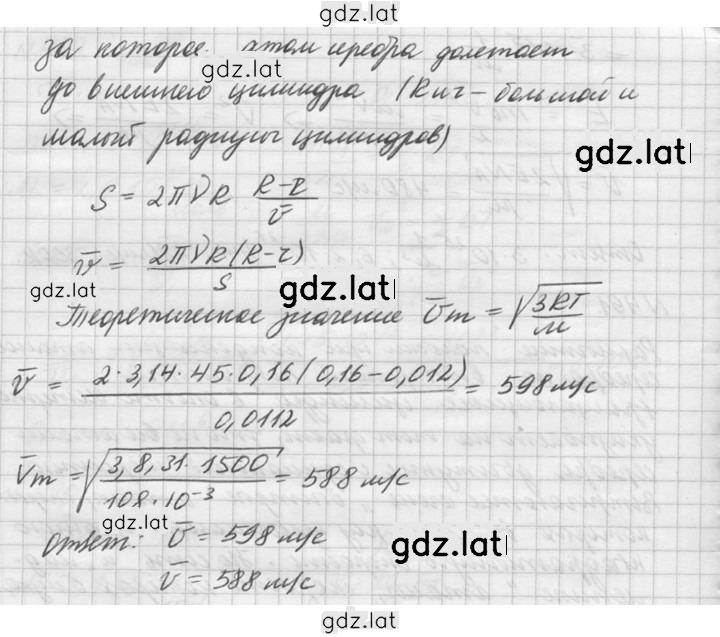 gdz.latl
за которое атом серебра долетает
gdz.latl
до внешнего цилиндра (R и r - большой и
малый радиусы цилиндров)
gdz.latl
S = 2πνR (R-r)/v̄
v̄ = 2πνR(R-r)/S
gdz.latl
gdz.latl
Теоретическое значение v̄т = √(3RT/M)
v̄ = 2·3,14·45·0,16(0,16-0,012)/0,0112 = 598 м/с
v̄т = √(3,8,31·1500/108·10⁻³) = 588 м/с
gdz.latl
Ответ: v̄ = 598 м/с
gdz.latl
v̄ = 588 м/с
gdz.latl